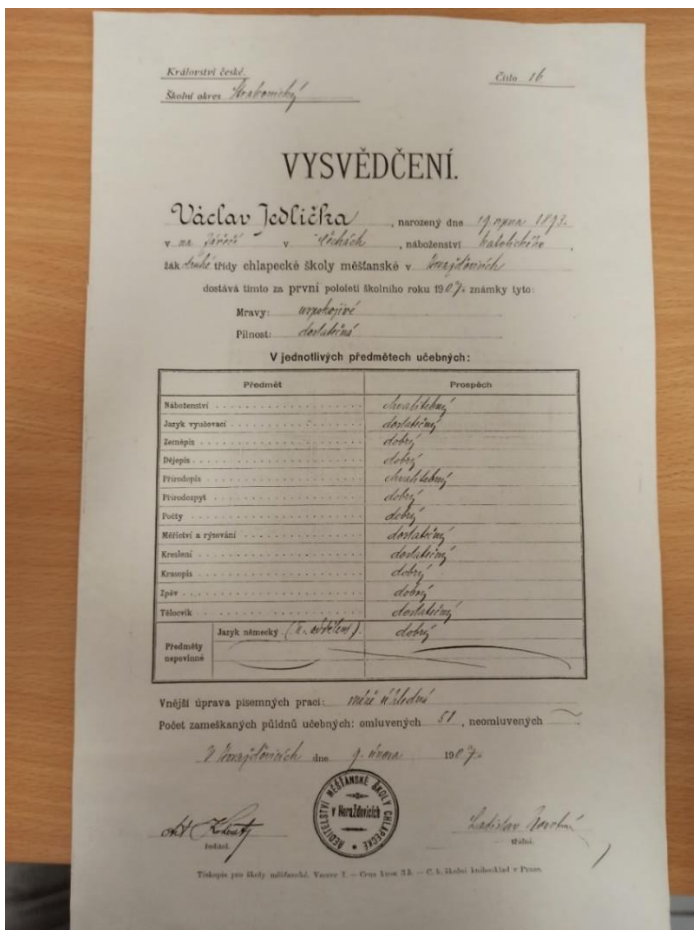 Království české.
Číslo 16
Školní okres Strakonický
VYSVĚDČENÍ.
Václav Jedlička, narozený dne 19. srpna 1893.
v na Zářečí v Čechách, náboženství katolického,
žák druhé třídy chlapecké školy měšťanské v Horažďovicích
dostává tímto za první pololetí školního roku 1907. známky tyto:
Mravy:
Pilnost: dostatečná
V jednotlivých předmětech učebných:
Předmět Prospěch
Náboženství chvalitebný
Jazyk vyučovací dostatečný
Zeměpis dobrý
Dějepis dobrý
Přírodopis chvalitebný
Přírodozpyt dobrý
Počty dobrý
Měřictví a rýsování dostatečný
Kreslení dostatečný
Krasopis dobrý
Zpěv dobrý
Tělocvik dostatečný
Předměty nepovinné Jazyk německý (II. oddělení). dobrý
Vnější úprava písemných prací: méně úhledná
Počet zameškaných půldnů učebných: omluvených 51, neomluvených —
V Horažďovicích dne 9. února 1907.
ŘEDITELSTVÍ MĚŠŤANSKÉ ŠKOLY CHLAPECKÉ
v Horažďovicích
Ladislav
ředitel. třídní.
Tiskopis pro školy měšťanské. Vzorec I. — Cena kusu 3 h. — C. k. školní knihosklad v Praze.